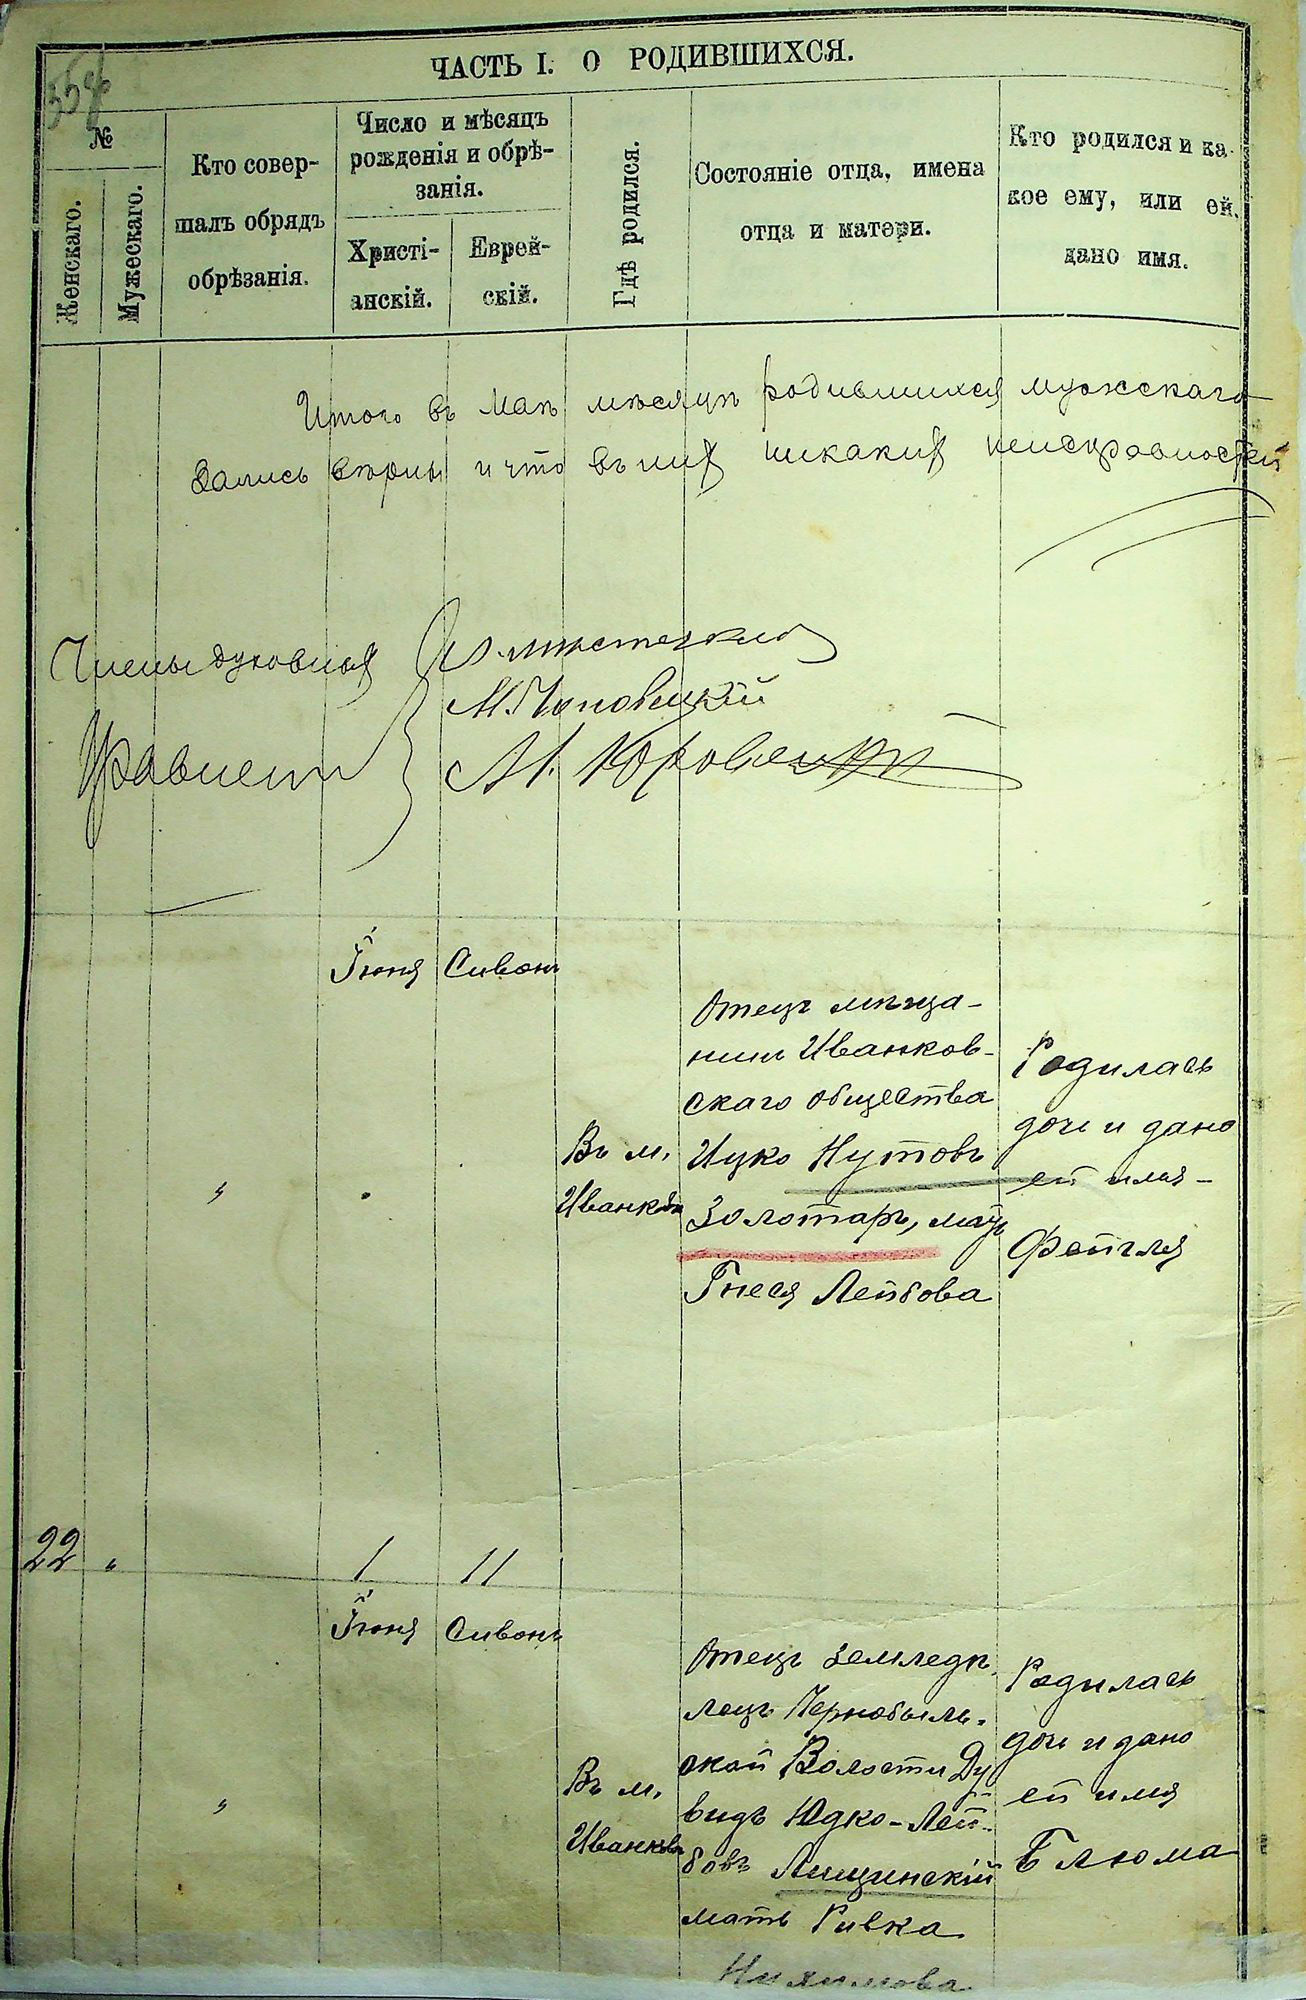 554
ЧАСТЬ I. О РОДИВШИХСЯ.
№
Женскаго.
Мужескаго.
Кто совер-
шалъ обрядъ
обрѣзанія.
Число и мѣсяцъ
рожденія и обрѣ-
занія.
Христі-
анскій.
Еврей-
скій.
Гдѣ родился.
Состояніе отца, имена
отца и матери.
Кто родился и ка-
кое ему, или ей,
дано имя.
Итого въ маѣ мѣсяцѣ родившихся мужскаго
запись вѣрны и что въ них никаких неисправностей
Члены духовныя
Правленія
М. Чаповецкій
М.
Іюня Сивонъ
Отецъ мѣща-
нинъ Иванков-
скаго общества
Ицко Нутовъ
Золотаръ, мать
Гнеся Лейбова
Въ м.
Иванковѣ
Родилась
дочь и дано
ей имя-
Фейгля
"
22 " 1 11
Іюня Сивонъ
Отецъ земледѣ-
лецъ Чернобыль-
ской Волости Ду-
видъ Юдко-Лей-
бовъ Лищинскій
мать Ривка
Нухимова
Въ м.
Иванковѣ
Родилась
дочь и дано
ей имя
Блюма
"